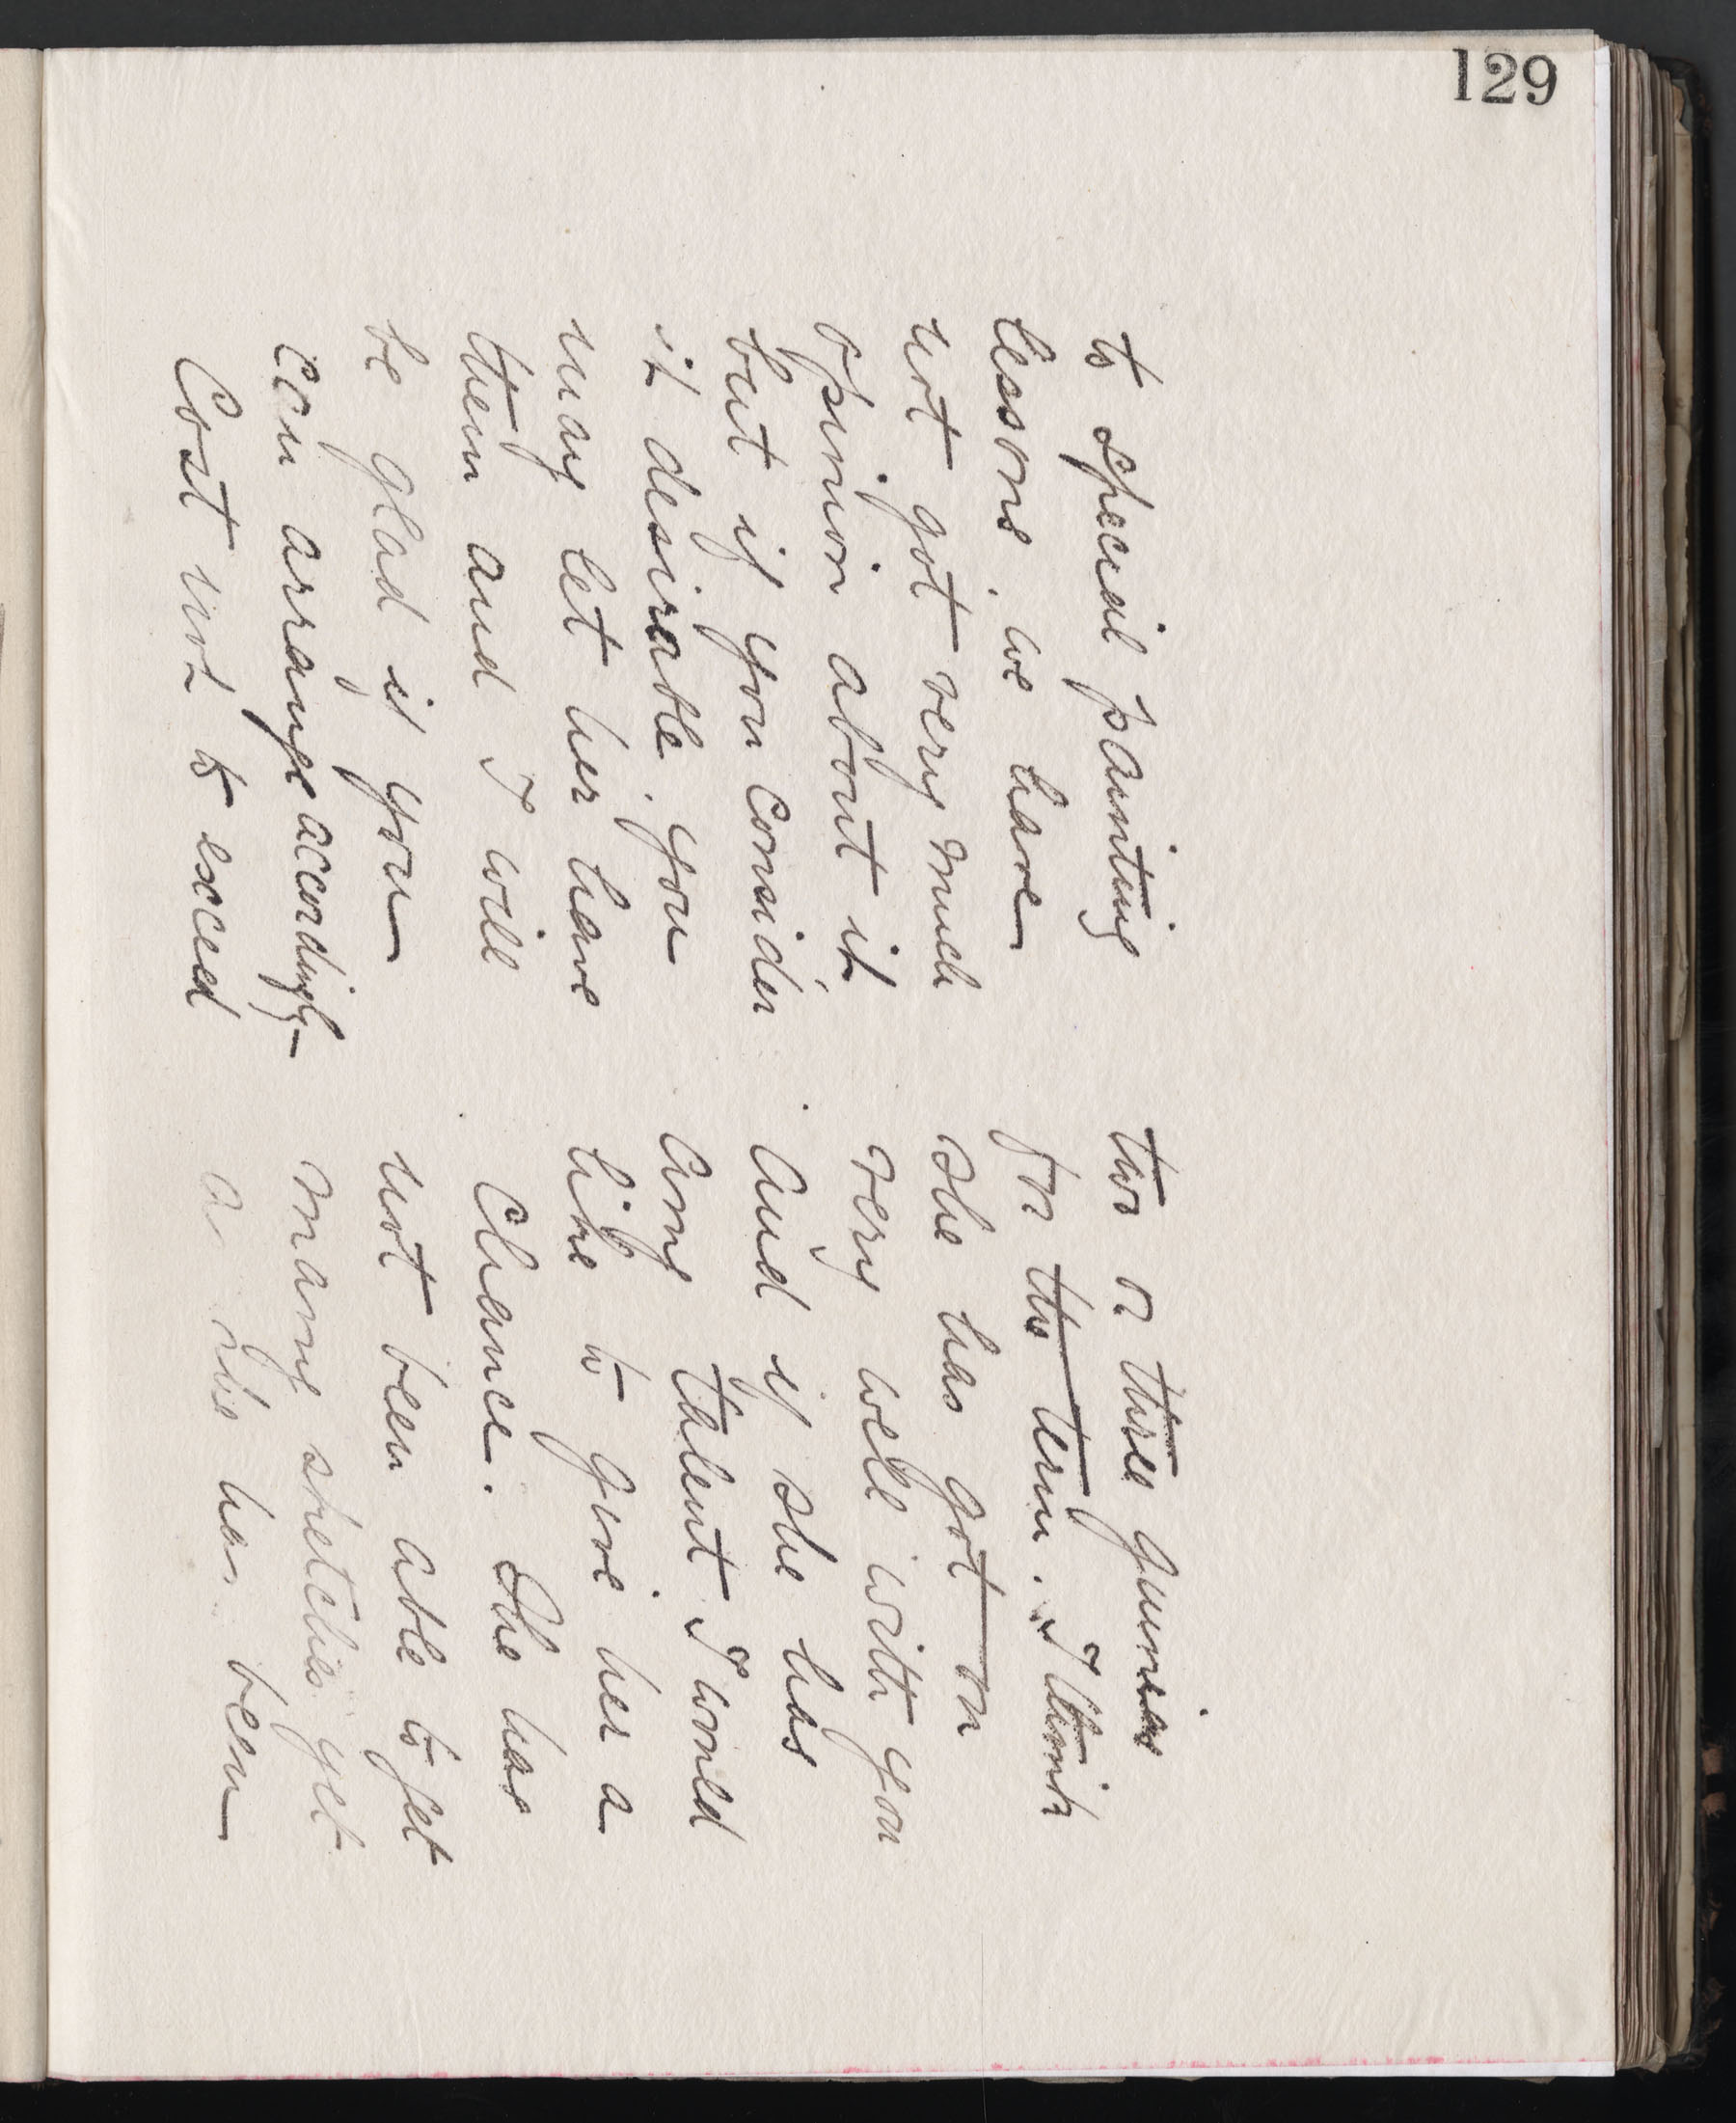 129
to special painting
lessons, we have
not got very much
opinion about it
but if you consider
it desirable, you
may let her have
them and I will
be glad if you
can arrange accordingly—
Cost not to exceed
two or three guineas
for the term. I think
she has got on
very well with you
and if she has
any talent I would
like to give her a
chance. She has
not been able to get
many sketches yet
as she has been